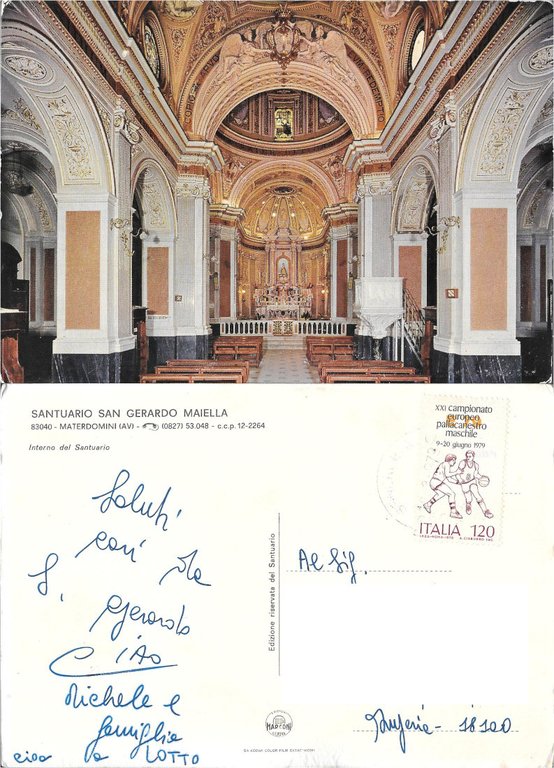 SANTUARIO SAN GERARDO MAIELLA
83040 - MATERDOMINI (AV) - (0827) 53.048 - c.c.p. 12-2264
Interno del Santuario
Saluti
cari da
S. Gerardo
CIAO
Michele e
famiglia
ciao a LOTTO
Edizione riservata del Santuario
XXI campionato
europeo
pallacanestro
maschile
9-20 giugno 1979
ITALIA 120
Al Sig.
Imperia - 18100